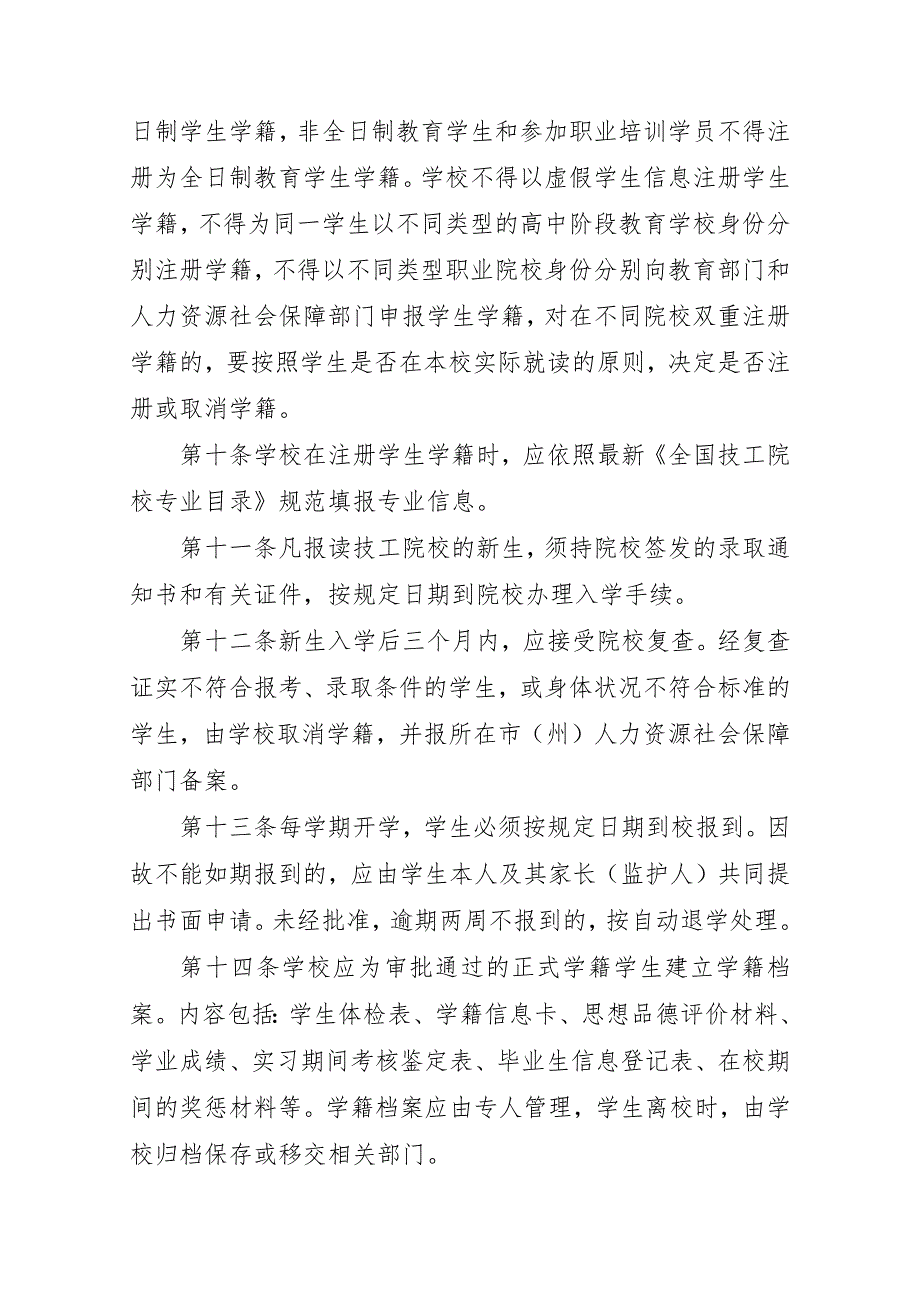 日制学生学籍，非全日制教育学生和参加职业培训学员不得注
册为全日制教育学生学籍。学校不得以虚假学生信息注册学生
学籍，不得为同一学生以不同类型的高中阶段教育学校身份分
别注册学籍，不得以不同类型职业院校身份分别向教育部门和
人力资源社会保障部门申报学生学籍，对在不同院校双重注册
学籍的，要按照学生是否在本校实际就读的原则，决定是否注
册或取消学籍。
第十条学校在注册学生学籍时，应依照最新《全国技工院
校专业目录》规范填报专业信息。
第十一条凡报读技工院校的新生，须持院校签发的录取通
知书和有关证件，按规定日期到院校办理入学手续。
第十二条新生入学后三个月内，应接受院校复查。经复查
证实不符合报考、录取条件的学生，或身体状况不符合标准的
学生，由学校取消学籍，并报所在市（州）人力资源社会保障
部门备案。
第十三条每学期开学，学生必须按规定日期到校报到。因
故不能如期报到的，应由学生本人及其家长（监护人）共同提
出书面申请。未经批准，逾期两周不报到的，按自动退学处理。
第十四条学校应为审批通过的正式学籍学生建立学籍档
案。内容包括：学生体检表、学籍信息卡、思想品德评价材料、
学业成绩、实习期间考核鉴定表、毕业生信息登记表、在校期
间的奖惩材料等。学籍档案应由专人管理，学生离校时，由学
校归档保存或移交相关部门。